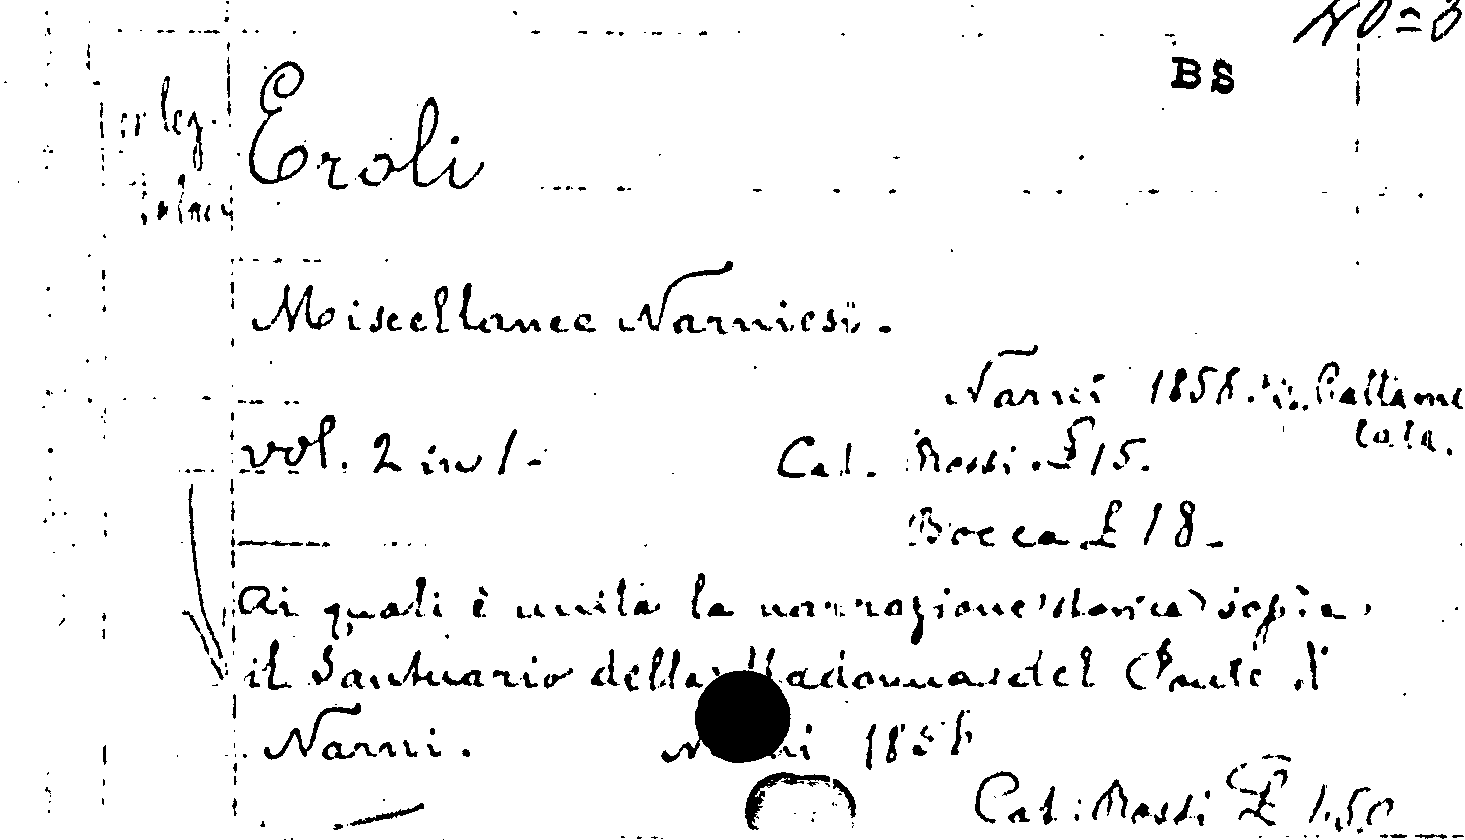 BS
leg.
Eroli
Miscellanee Narniesi.
Narni 1858. Gattame
lata.
vol. 2 in 1-
Cat. Rossi. £ 15.
Bocca £ 18-
ai quali è unita la narrazione storica sopra
il Santuario della Madonna del Ponte di
Narni. Narni 1856
Cat. Rossi £ 1.50